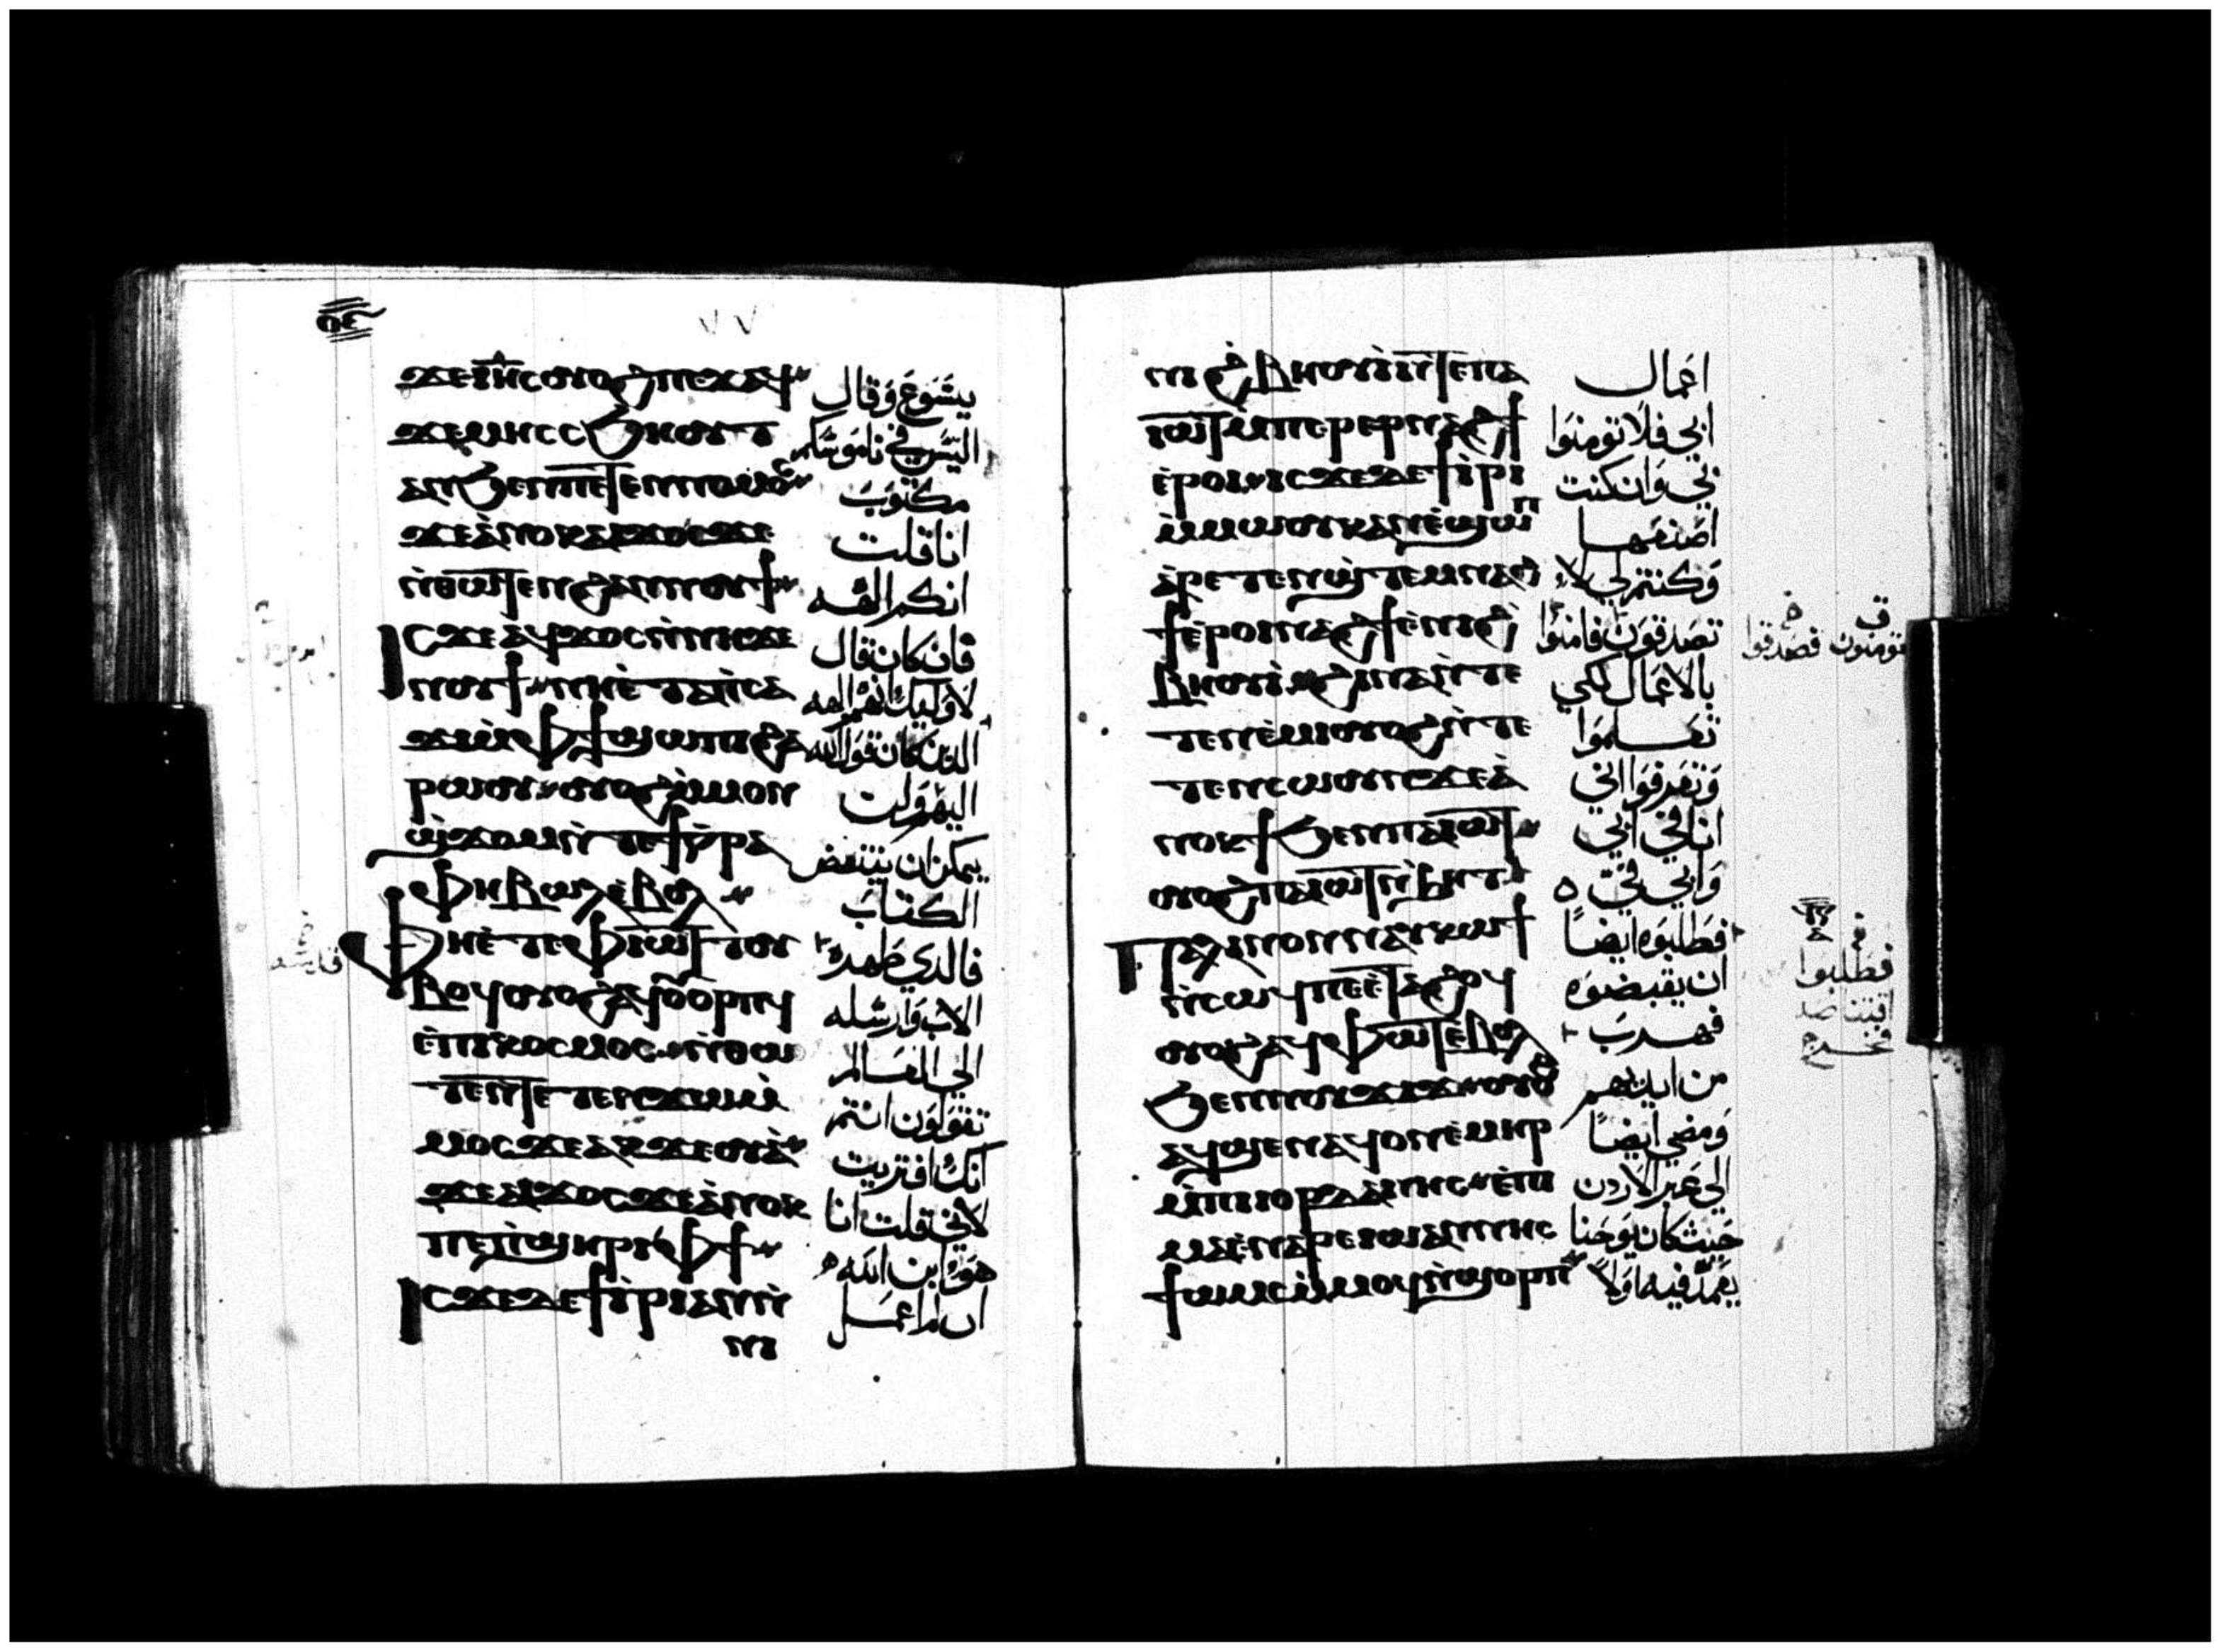 ٧٧
ϫⲉⲓⲏⲥ ⲟⲩⲟϩ ⲡⲉϫⲁϥ
ϫⲉⲙⲏ ⲥⲥϧⲏⲟⲩⲧ
ⲁⲛ ϧⲉⲛⲡⲉⲧⲉⲛⲛⲟⲙⲟⲥ
ϫⲉⲁⲛⲟⲕ ⲁⲓϫⲟⲥ ϫⲉ
ⲛⲑⲱⲧⲉⲛ ϩⲁⲛⲛⲟⲩϯ
ⲓⲥϫⲉ ⲁϥϫⲟⲥ ⲛⲛⲏ ϫⲉ
ⲛⲟⲩϯ ⲛⲏⲉⲧⲁⲡⲥⲁ
ϫⲓ ⲙⲫϯ ϣⲱⲡⲓ ϩⲁ
ⲣⲱⲟⲩ ⲟⲩⲟϩ ⲙⲙⲟⲛ
ϣϫⲟⲙ ⲛⲧⲉϯⲅⲣⲁ
ⲫⲏ ⲃⲱⲗ ⲉⲃⲟⲗ
ⲫⲏⲉⲧⲉⲫⲓⲱⲧ ⲧⲟⲩ
ⲃⲟϥ ⲟⲩⲟϩ ⲁϥⲟⲩⲟⲣⲡϥ
ⲉⲡⲓⲕⲟⲥⲙⲟⲥ ⲛⲑⲱ
ⲧⲉⲛ ⲧⲉⲧⲉⲛϫⲱ ⲙ
ⲙⲟⲥ ϫⲉ ⲁⲕϫⲉⲟⲩⲁ
ϫⲉ ⲁⲓϫⲟⲥ ϫⲉ ⲁⲛⲟⲕ
ⲡⲉ ⲡϣⲏⲣⲓ ⲙⲫϯ
ⲓⲥϫⲉ ⲇⲉ ϯⲓⲣⲓ ⲁⲛ ⲛ
ⲛⲓ
يشوع وقال
اليس في ناموسكم
مكتوب
انا قلت
انكم الهه
فان كان قال
لاوليك انهم الهه
الدين كان قول الله
اليهم ولن
يمكن ان ينتقض
الكتاب
فالدي طهره
الاب وارسله
الي العالم
تقولون انتم
انك افتريت
لاني قلت انا
هو ابن الله
ان لم اعمل
ⲛⲓϩⲃⲏⲟⲩⲓ ⲛⲧⲉⲡⲁ
ⲓⲱⲧ ⲙⲡⲉⲣⲉⲣⲛⲁϩϯ
ⲉⲣⲟⲓ ⲓⲥϫⲉ ⲇⲉ ϯⲓⲣⲓ
ⲙⲙⲱⲟⲩ ⲕⲁⲛ ⲉϣⲱⲡ
ⲁⲣⲉⲧⲉⲛϣⲧⲉⲙⲛⲁϩ
ϯ ⲉⲣⲟⲓ ⲛⲁϩϯ ⲉⲛⲓϩ
ⲃⲏⲟⲩⲓ ϩⲓⲛⲁ ⲛⲧⲉ
ⲧⲉⲛⲉⲙⲓ ⲟⲩⲟϩ ⲛⲧⲉ
ⲧⲉⲛⲥⲱⲟⲩⲛ ϫⲉ ⲁ
ⲛⲟⲕ ϯϧⲉⲛⲡⲁⲓⲱⲧ
ⲟⲩⲟϩ ⲡⲁⲓⲱⲧ ⲛϧⲏⲧ
ⲡⲁⲗⲓⲛ ⲟⲛ ⲛⲁⲩⲕⲱϯ
ⲛⲥⲱϥ ⲡⲉ ⲉⲧⲁϩⲟϥ
ⲟⲩⲟϩ ⲁϥⲫⲱⲧ ⲉⲃⲟⲗ
ϧⲉⲛⲛⲟⲩϫⲓϫ ⲟⲩⲟϩ
ⲁϥϣⲉⲛⲁϥ ⲟⲛ ⲉⲙⲏⲣ
ⲙⲡⲓⲓⲟⲣⲇⲁⲛⲏⲥ ⲉⲡⲓ
ⲙⲁ ⲉⲛⲁⲣⲉ ⲓⲱⲁⲛⲛⲏⲥ
ϯⲱⲙⲥ ⲙⲙⲟϥ ⲛϣⲟⲣⲡ
اعمال
ابي فلا تومنوا
بي وان كنت
اصنعها
وكنتم لي لا
تصدقون فامنوا
بالاعمال لكي
تعلموا
وتعرفوا اني
انا في ابي
وابي في
فطلبوه ايضا
ان يقبضوه
فهرب
من ايديهم
ومضي ايضا
الي عبر الاردن
حيث كان يوحنا
يعمد فيه اولا
تومنون فصدقوا
فطلبوا
فخرج